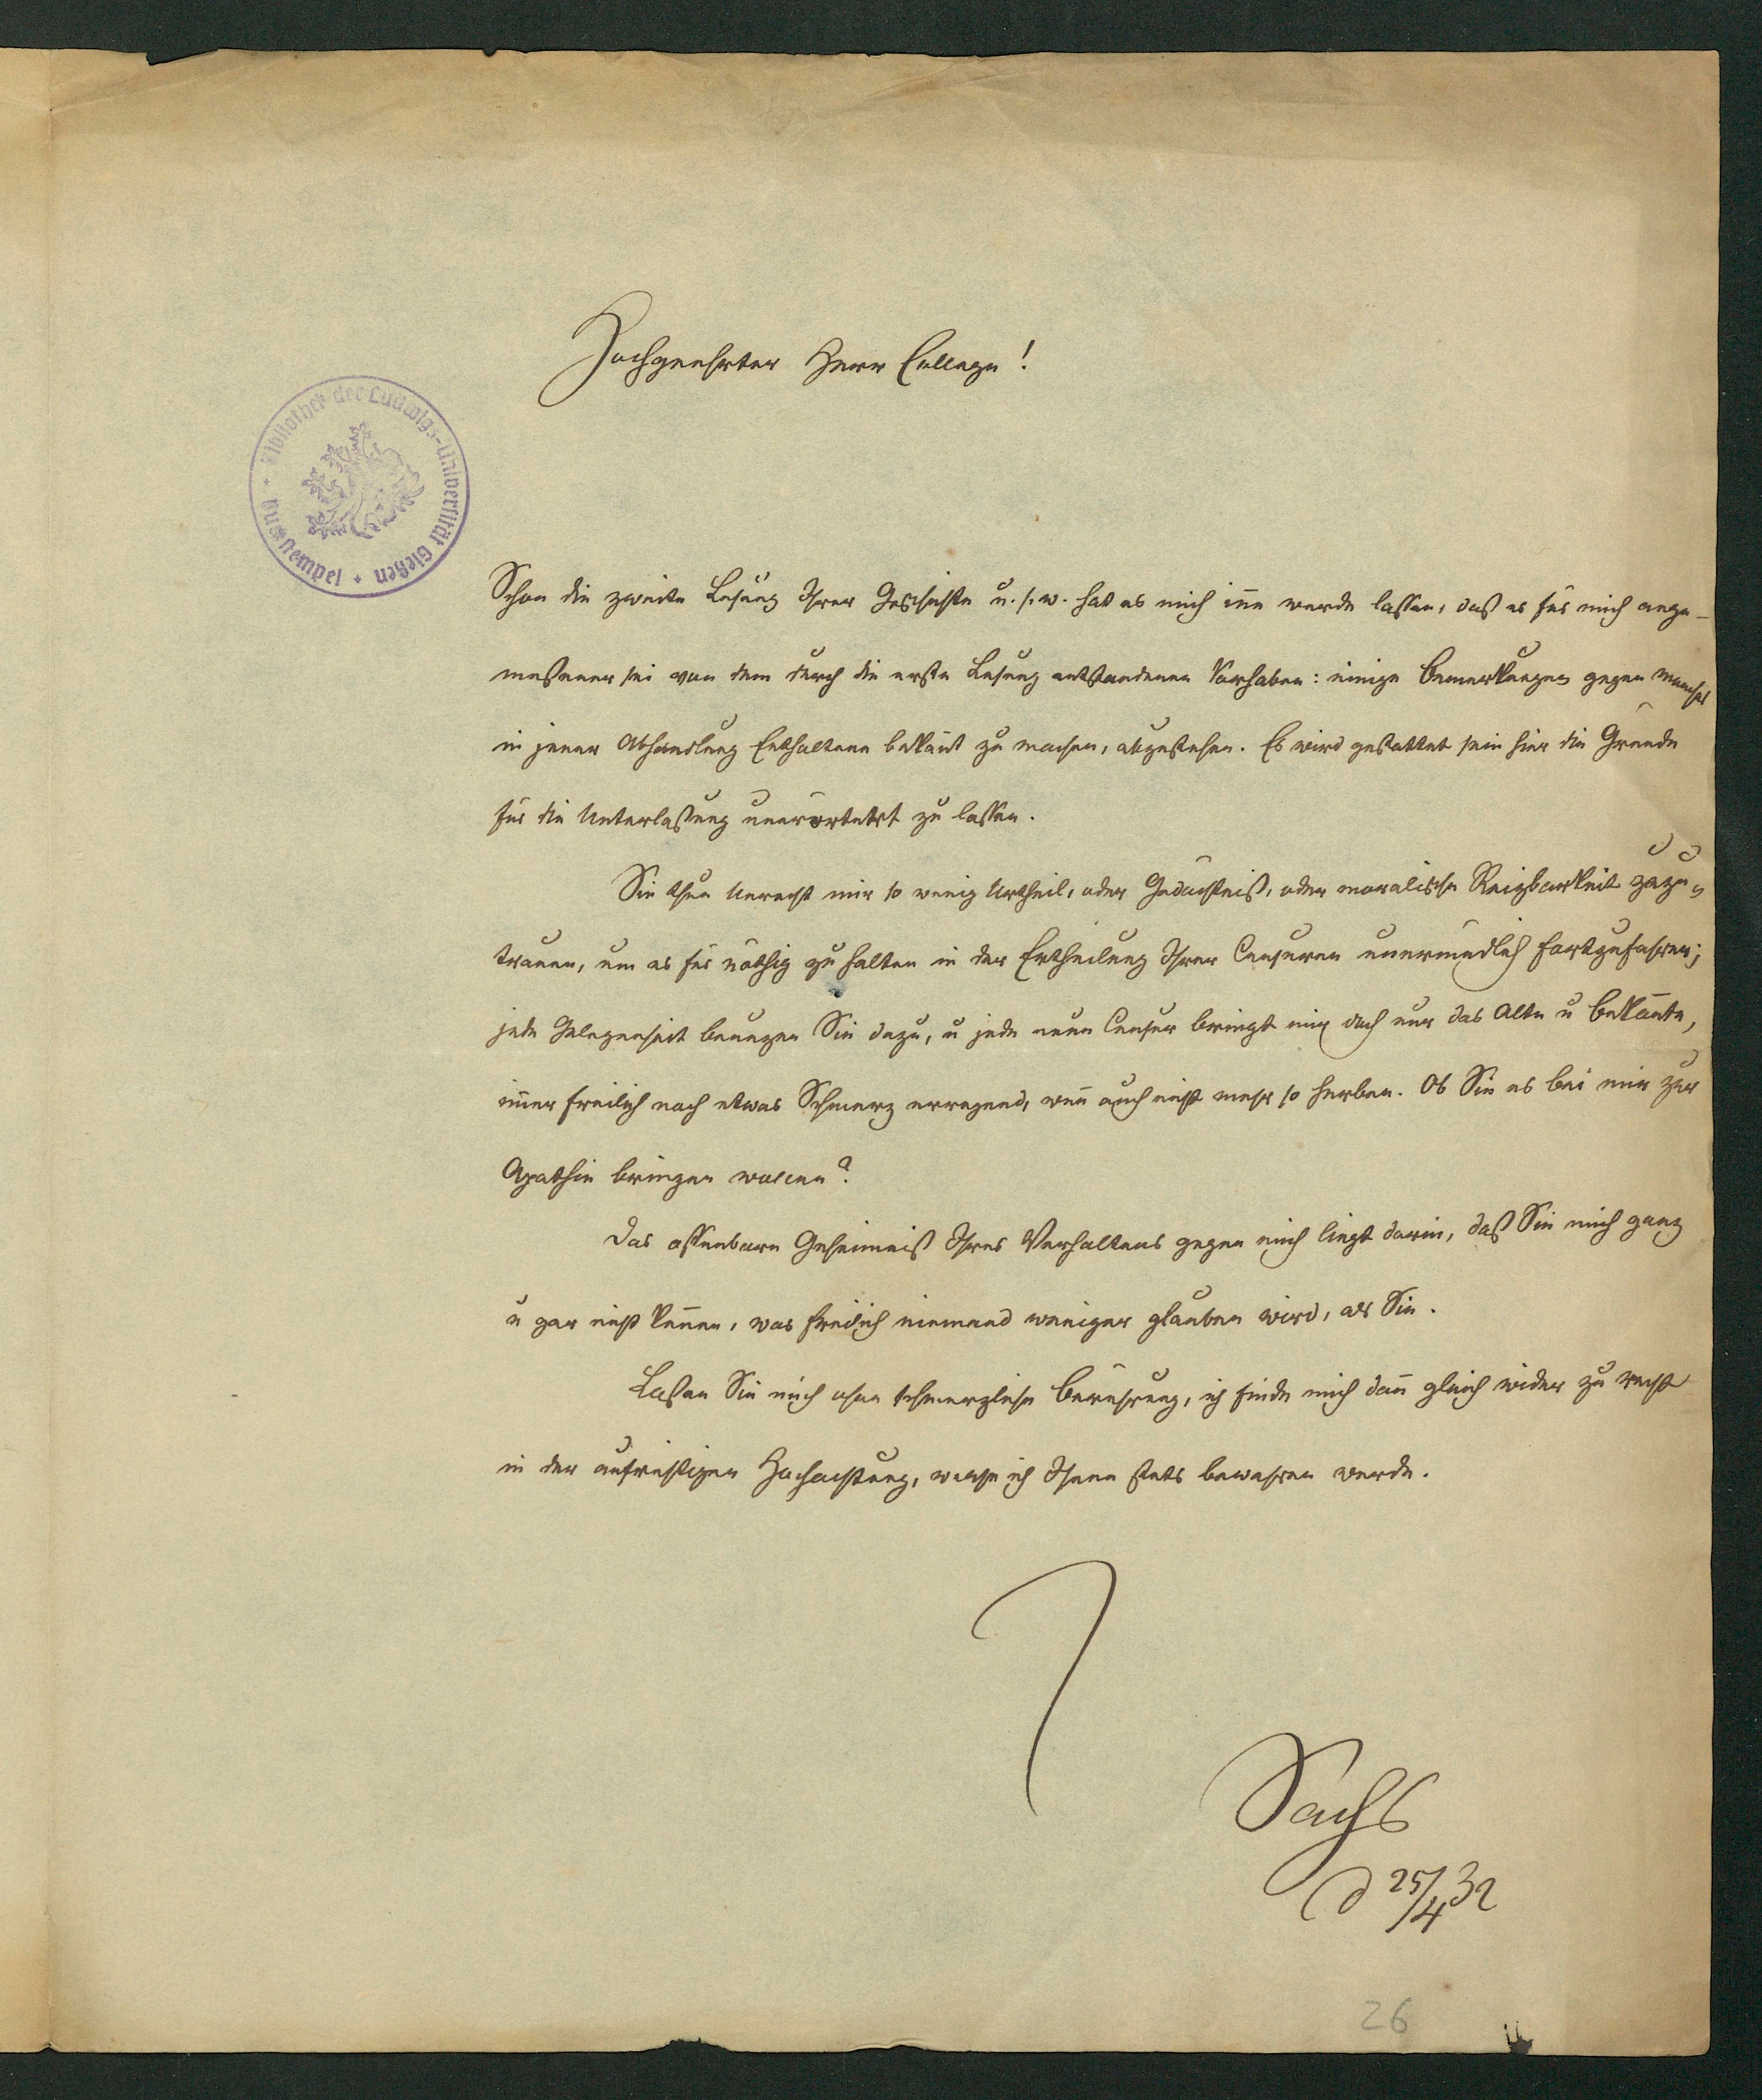 Hochgeehrter Herr College!
Bibliothek der Ludwigs-Universität Gießen
Schon die zweite Lesung Ihrer Geschichte u. s. w. hat es mich iñe werde lassen, daß es für mich ange-
meßener sei von dem durch die erste Lesung entstandenen Vorhaben: einige Bemerkungen gegen manches
in jener Abhandlung Enthaltene bekañt zu machen, abzustehen. Es wird gestattet sein hier die Gründe
für die Unterlaßung unerörtert zu lassen.
Sie thun Unrecht mir so wenig Urtheil, oder Gedächtniß, oder moralische Reizbarkeit zuzu-
trauen, um es für nöthig zu halten in der Ertheilung Ihrer Censuren unermüdlich fortzufahren;
jede Gelegenheit benuzen Sie dazu, u jede neue Censur bringt mir doch nur das Alte u Bekañte,
im̃er freilich noch etwas Schmerz erregend, weñ auch nicht mehr so herben. Ob Sie es bei mir zur
Apathie bringen wollen?
Das offenbare Geheimniß Ihres Verhaltens gegen mich liegt darin, daß Sie mich ganz
u gar nicht keñen, was freilich niemand weniger glauben wird, als Sie.
Laßen Sie mich ohne schmerzliche Berührung, ich finde mich dañ gleich wieder zu recht
in der aufrichtigen Hochachtung, welche ich Ihnen stets bewahren werde.
Sachs
d 25/4 32
26